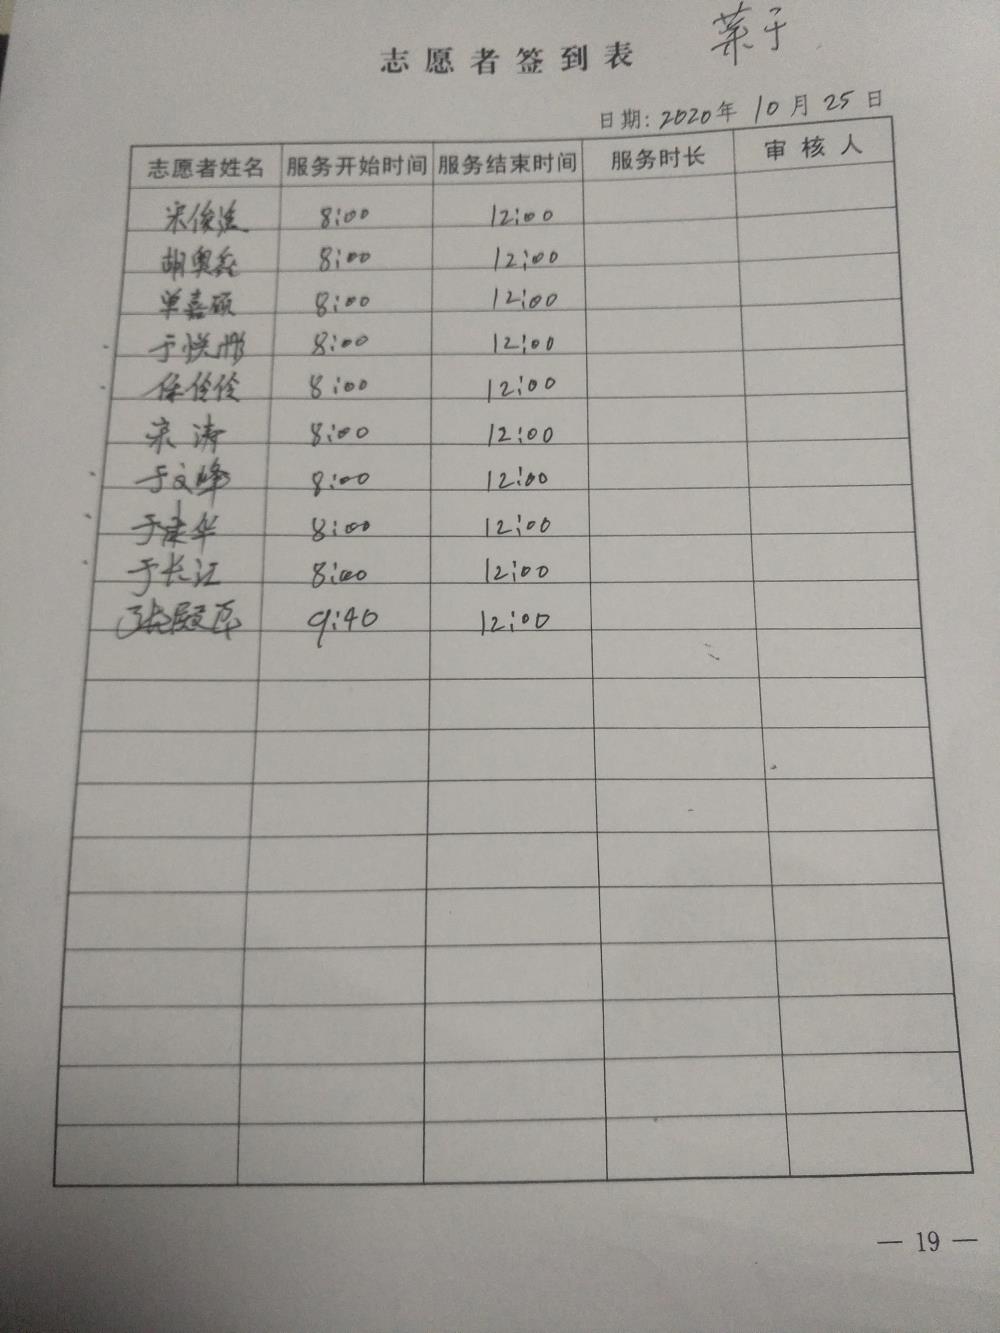 菜于
志愿者签到表
日期: 2020年 10月 25日
志愿者姓名 服务开始时间 服务结束时间 服务时长 审核人
宋俊 8:00 12:00
胡奥 8:00 12:00
单嘉硕 8:00 12:00
于 8:00 12:00
伶伶 8:00 12:00
宋涛 8:00 12:00
于文峰 8:00 12:00
于建华 8:00 12:00
于长江 8:00 12:00
张殿 9:40 12:00
— 19 —